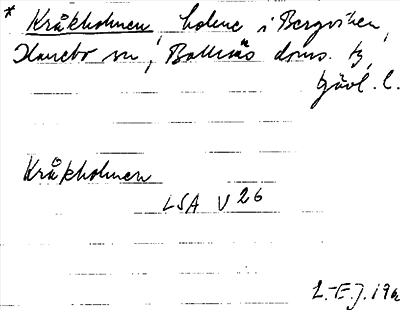 * Kråkholmen, holme i Bergviken,
Hanebo sn, Bollnäs doms. tg,
Gävl. l.
Kråkholmen
LSA V 26
L-E.J. 196